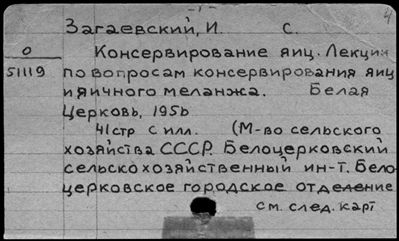 4
Загаевский, И. С.
О
51119
Консервирование яиц. Лекции
по вопросам консервирования яиц
и яичного меланжа. Белая
Церковь, 1956
41 стр с илл. (М-во сельского
хозяйства СССР. Белоцерковский
сельскохозяйственный ин-т. Бело-
церковское городское отделение
см. след. карт